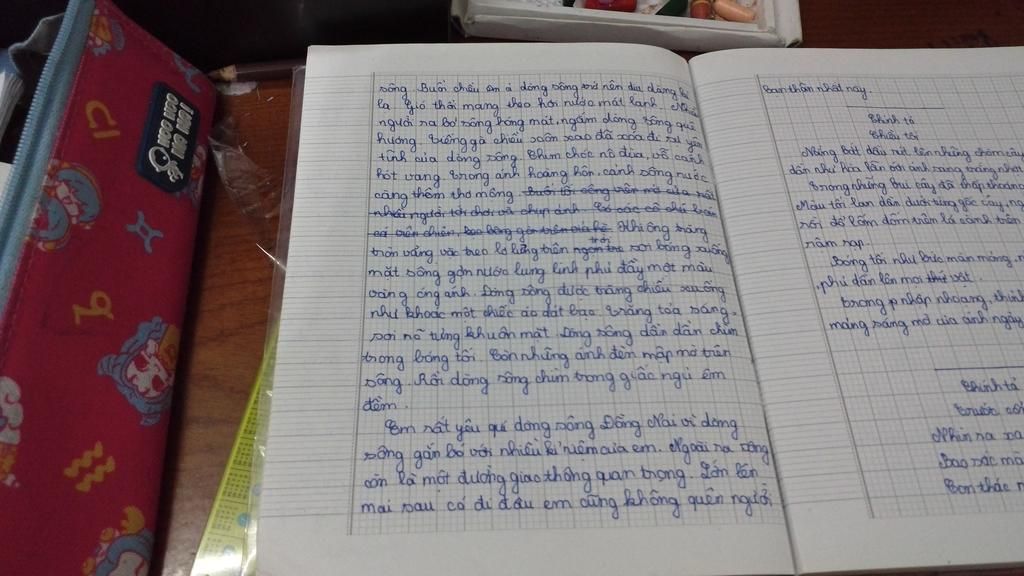 sông. Buổi chiều êm ả dòng sông trở nên dịu dàng
lạ. Gió thổi mang theo hơi nước mát lạnh.
người ra bờ sông hóng mát, ngắm dòng sông quê
hương. Tiếng gà chiều xôn xao đã xóa đi sự yên
tĩnh của dòng sông. Chim chóc nô đùa, vỗ cánh
hót vang. Trong ánh hoàng hôn, cảnh sông nước
càng thêm thơ mộng. Buổi tối công viên mở cửa rất
nhiều người tới chơi và chụp ảnh. Có các cô chú
Khi ông trăng
tròn vàng vắc treo lơ lửng trên ngọn tre rọi bóng xuống
trời
mặt sông gợn nước lung linh phủ đầy một màu
vàng óng ánh. Dòng sông được trăng chiếu xuống
như khoác một chiếc áo dát bạc. Trăng tỏa sáng,
rọi rõ từng khuôn mặt. Dòng sông dần dần chìm
trong bóng tối. Còn những ánh đèn mập mờ trên
sông. Rồi dòng sông chìm trong giấc ngủ êm
đềm.
Em rất yêu quí dòng sông Đồng Nai vì dòng
sông gắn bó với nhiều kỉ niệm của em. Ngoài ra sông
còn là một đường giao thông quan trọng. Lớn lên
mai sau có đi đâu em cũng không quên người
bạn thân nhất này.
Chính tả
Chiều tối
Nắng bắt đầu rút lên những chòm cây
dần như hòa lẫn với ánh sáng trắng nhợt
Trong những bụi cây đã thấp thoáng
Màu tối lan dần dưới từng gốc cây, ng
rồi đổ lốm đốm trên lá cành trên
năm rạp.
Bóng tối như bức màn mỏng, n
phủ dần lên mọi thứ vật.
trong nhập nhoạng, thỉnh
mảng sáng mờ của ánh ngày
Chính tả
Trước cổng
Nhìn ra xa
Bao sắc mà
Con thác r